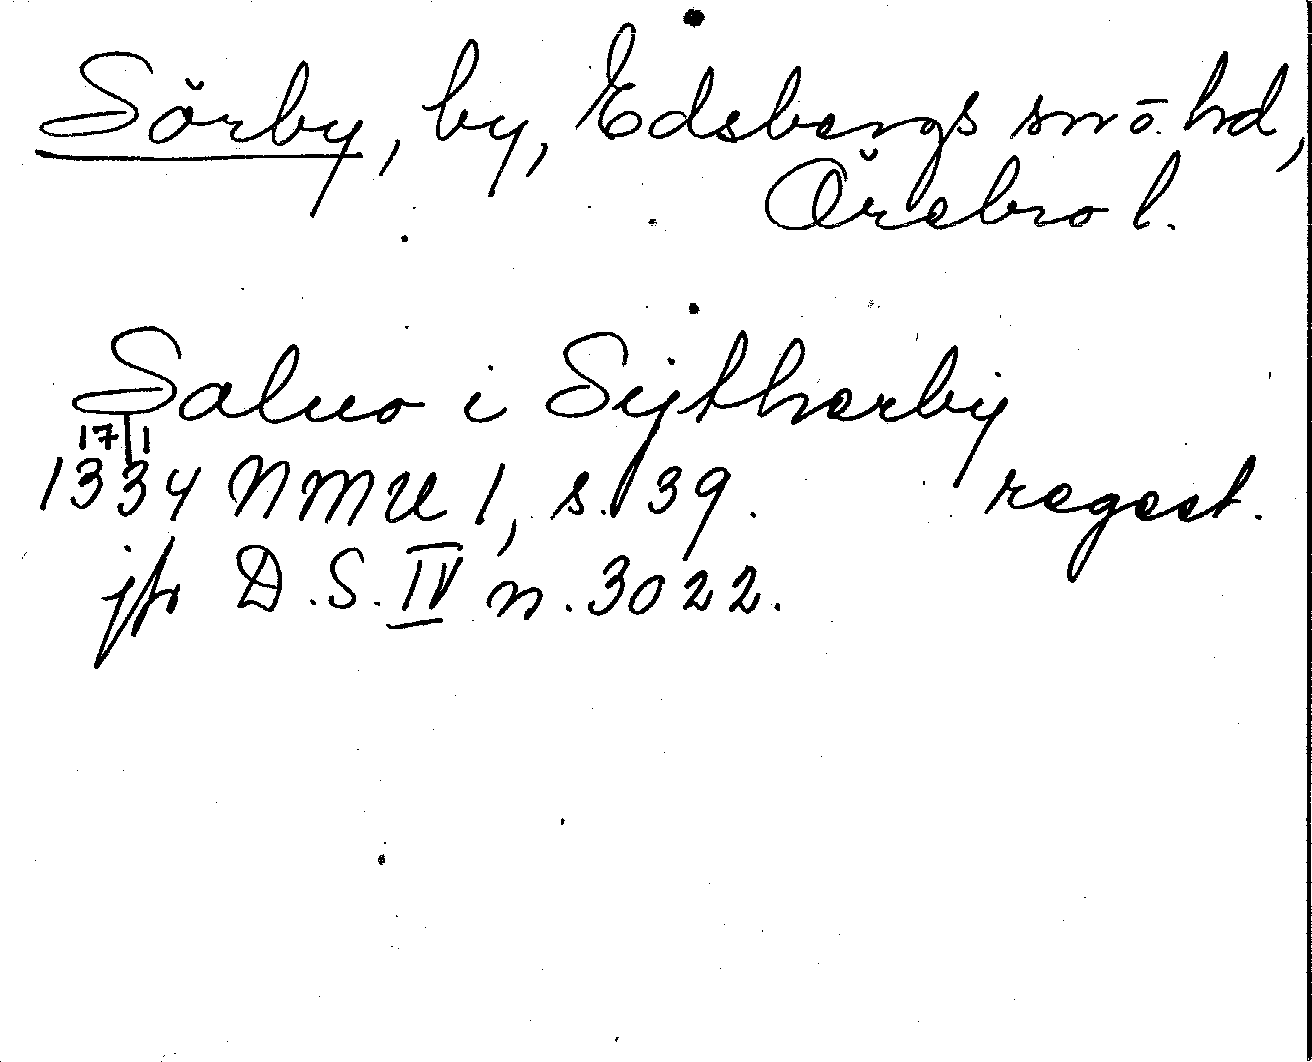 Sörby, by, Edsbergs sn o. hd,
Örebro l.
Saluo i Sytherby
17/1
1334 NMU 1, s. 39. regest.
jfr D.S. IV n. 3022.